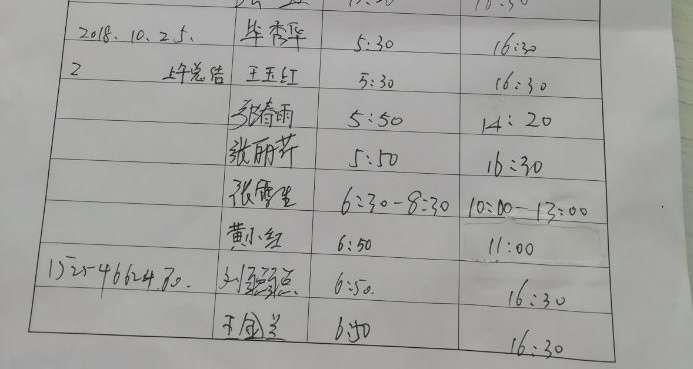 2018.10.25. 毕秀华 5:30 16:30
2 上午总结 王玉红 5:30 16:30
张春雨 5:50 14:20
张丽芹 5:50 16:30
张雪生 6:30-8:30 10:00-13:00
黄小红 6:50 11:00
15254662480. 刘 6:50. 16:30
王金兰 6:50 16:30